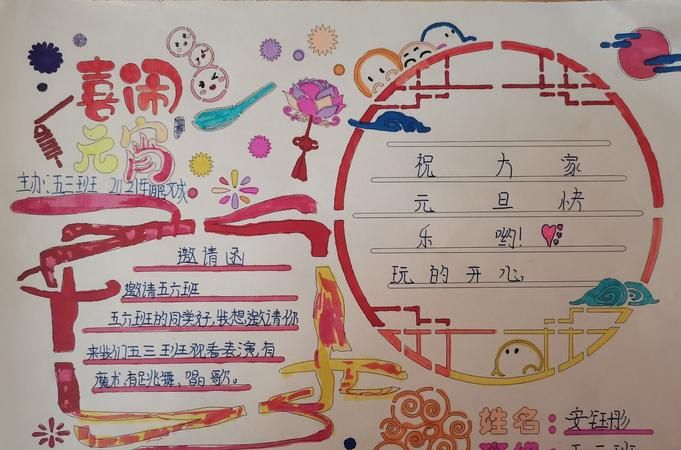 喜闹
元宵
主办:五三班 2021年
邀请函
邀请五六班
五六班的同学好,我想邀请你
来我们五三班观看表演,有
魔术,有跳舞、唱歌。
祝大家
元旦快
乐哟!
玩的开心
姓名:安钰彤